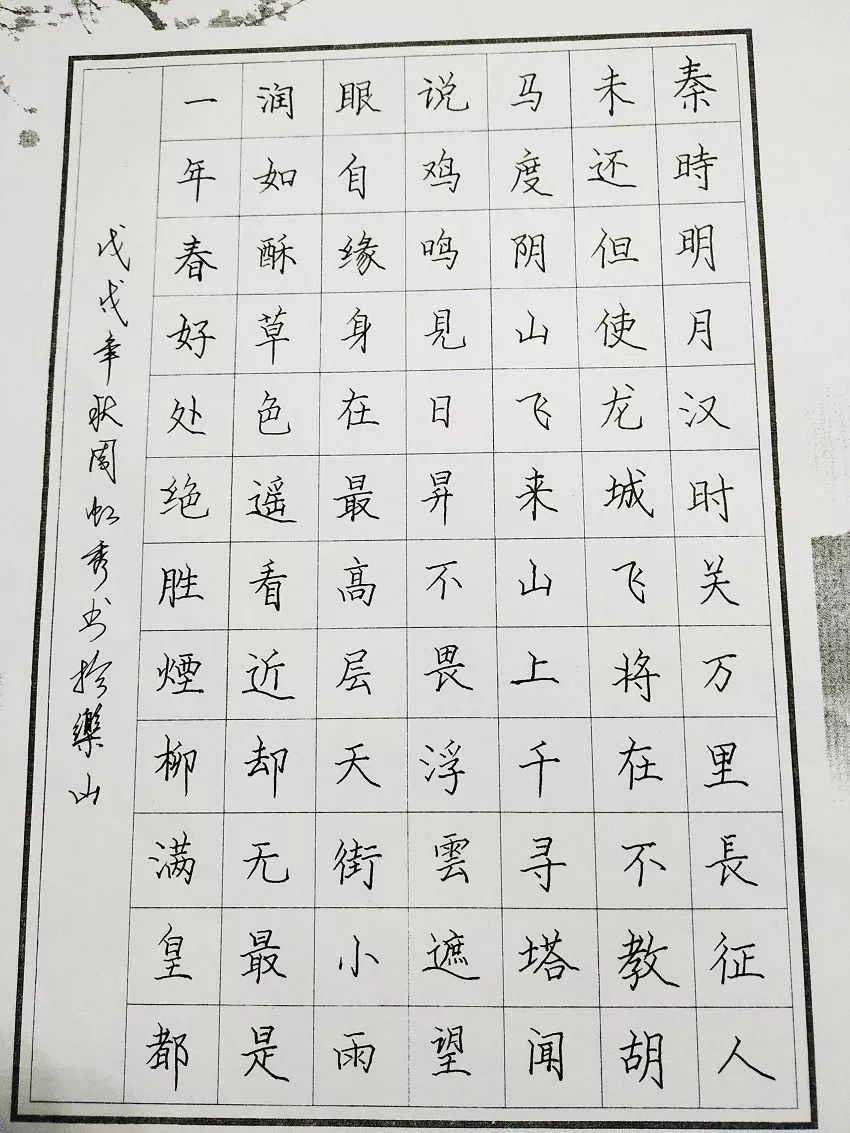 秦時明月汉时关万里長征人
未还但使龙城飞将在不教胡
马度阴山飞来山上千寻塔闻
说鸡鸣見日昇不畏浮雲遮望
眼自缘身在最高层天街小雨
润如酥草色遥看近却无最是
一年春好处绝胜煙柳满皇都
戊戌年秋周虹秀书於樂山